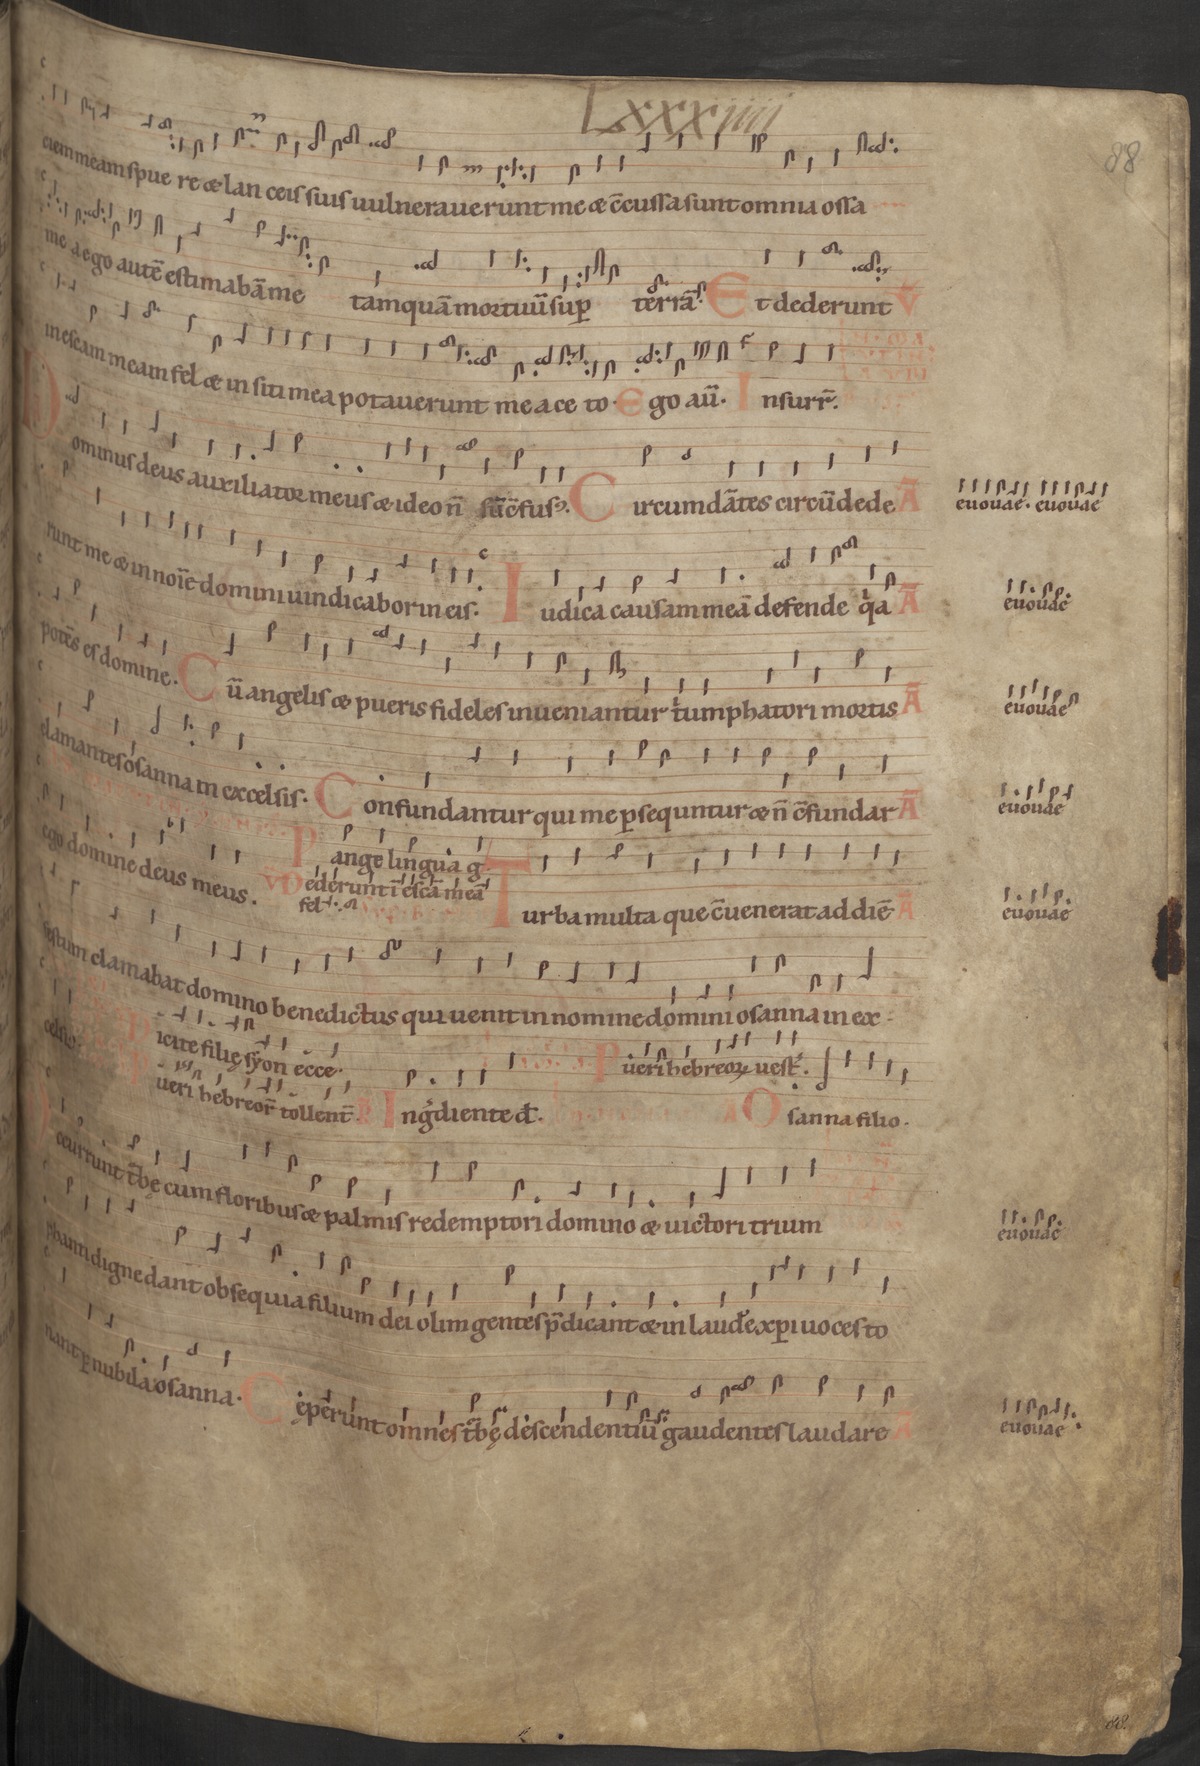 Lxxxiiii
88
ciem meam spue re & lan ceis suis uulneraue runt me & c̄cussa sunt omnia ossa
me a ego autē estimabā me tamquā mortuū sup terrā. Et dederunt V̄
in escam meam fel & in siti mea potauerunt me a ce to. Ego aū. Insurr̄.
Dominus deus auxiliator meus & ideo n̄ sū c̄fusꝰ. Circumdātes circūdede A̅ euouae. euouae
runt me & in noīe domini uindicabor in eis. Iudica causam meā defende q̇a A̅ euouae
potēs es domine. Cū angelis & pueris fideles inueniantur tͥumphatori mortis A̅ euouae
clamantes osanna in excelsis. Confundantur qui me ꝑsequntur & n̄ c̄fundar A̅ euouae
ego domine deus meus. Pange lingua g
V̄ Dederunt ī escā meā
fel
Turba multa que c̄uenerat ad diē A̅ euouae
festum clamabat domino benedictus qui uenit in nomine domini osanna in ex-
celsis.
Dicite filię syon ecce. Pueri hebreoꝝ uest̄.
Pueri hebreor̄ tollent̄. Ingͬdiente d̄. A̅ Osanna filio.
Occurrunt t̄bę cum floribus & palmis redemptori domino & uictori trium
phanti digne dant obsequia filium dei olim gentes p̄dicant & in laudē xp̄i uoces to euouae
nant ꝑ nubila osanna. Ceperunt omnes t̄bę descendentiū gaudentes laudare A̅ euouae
88.